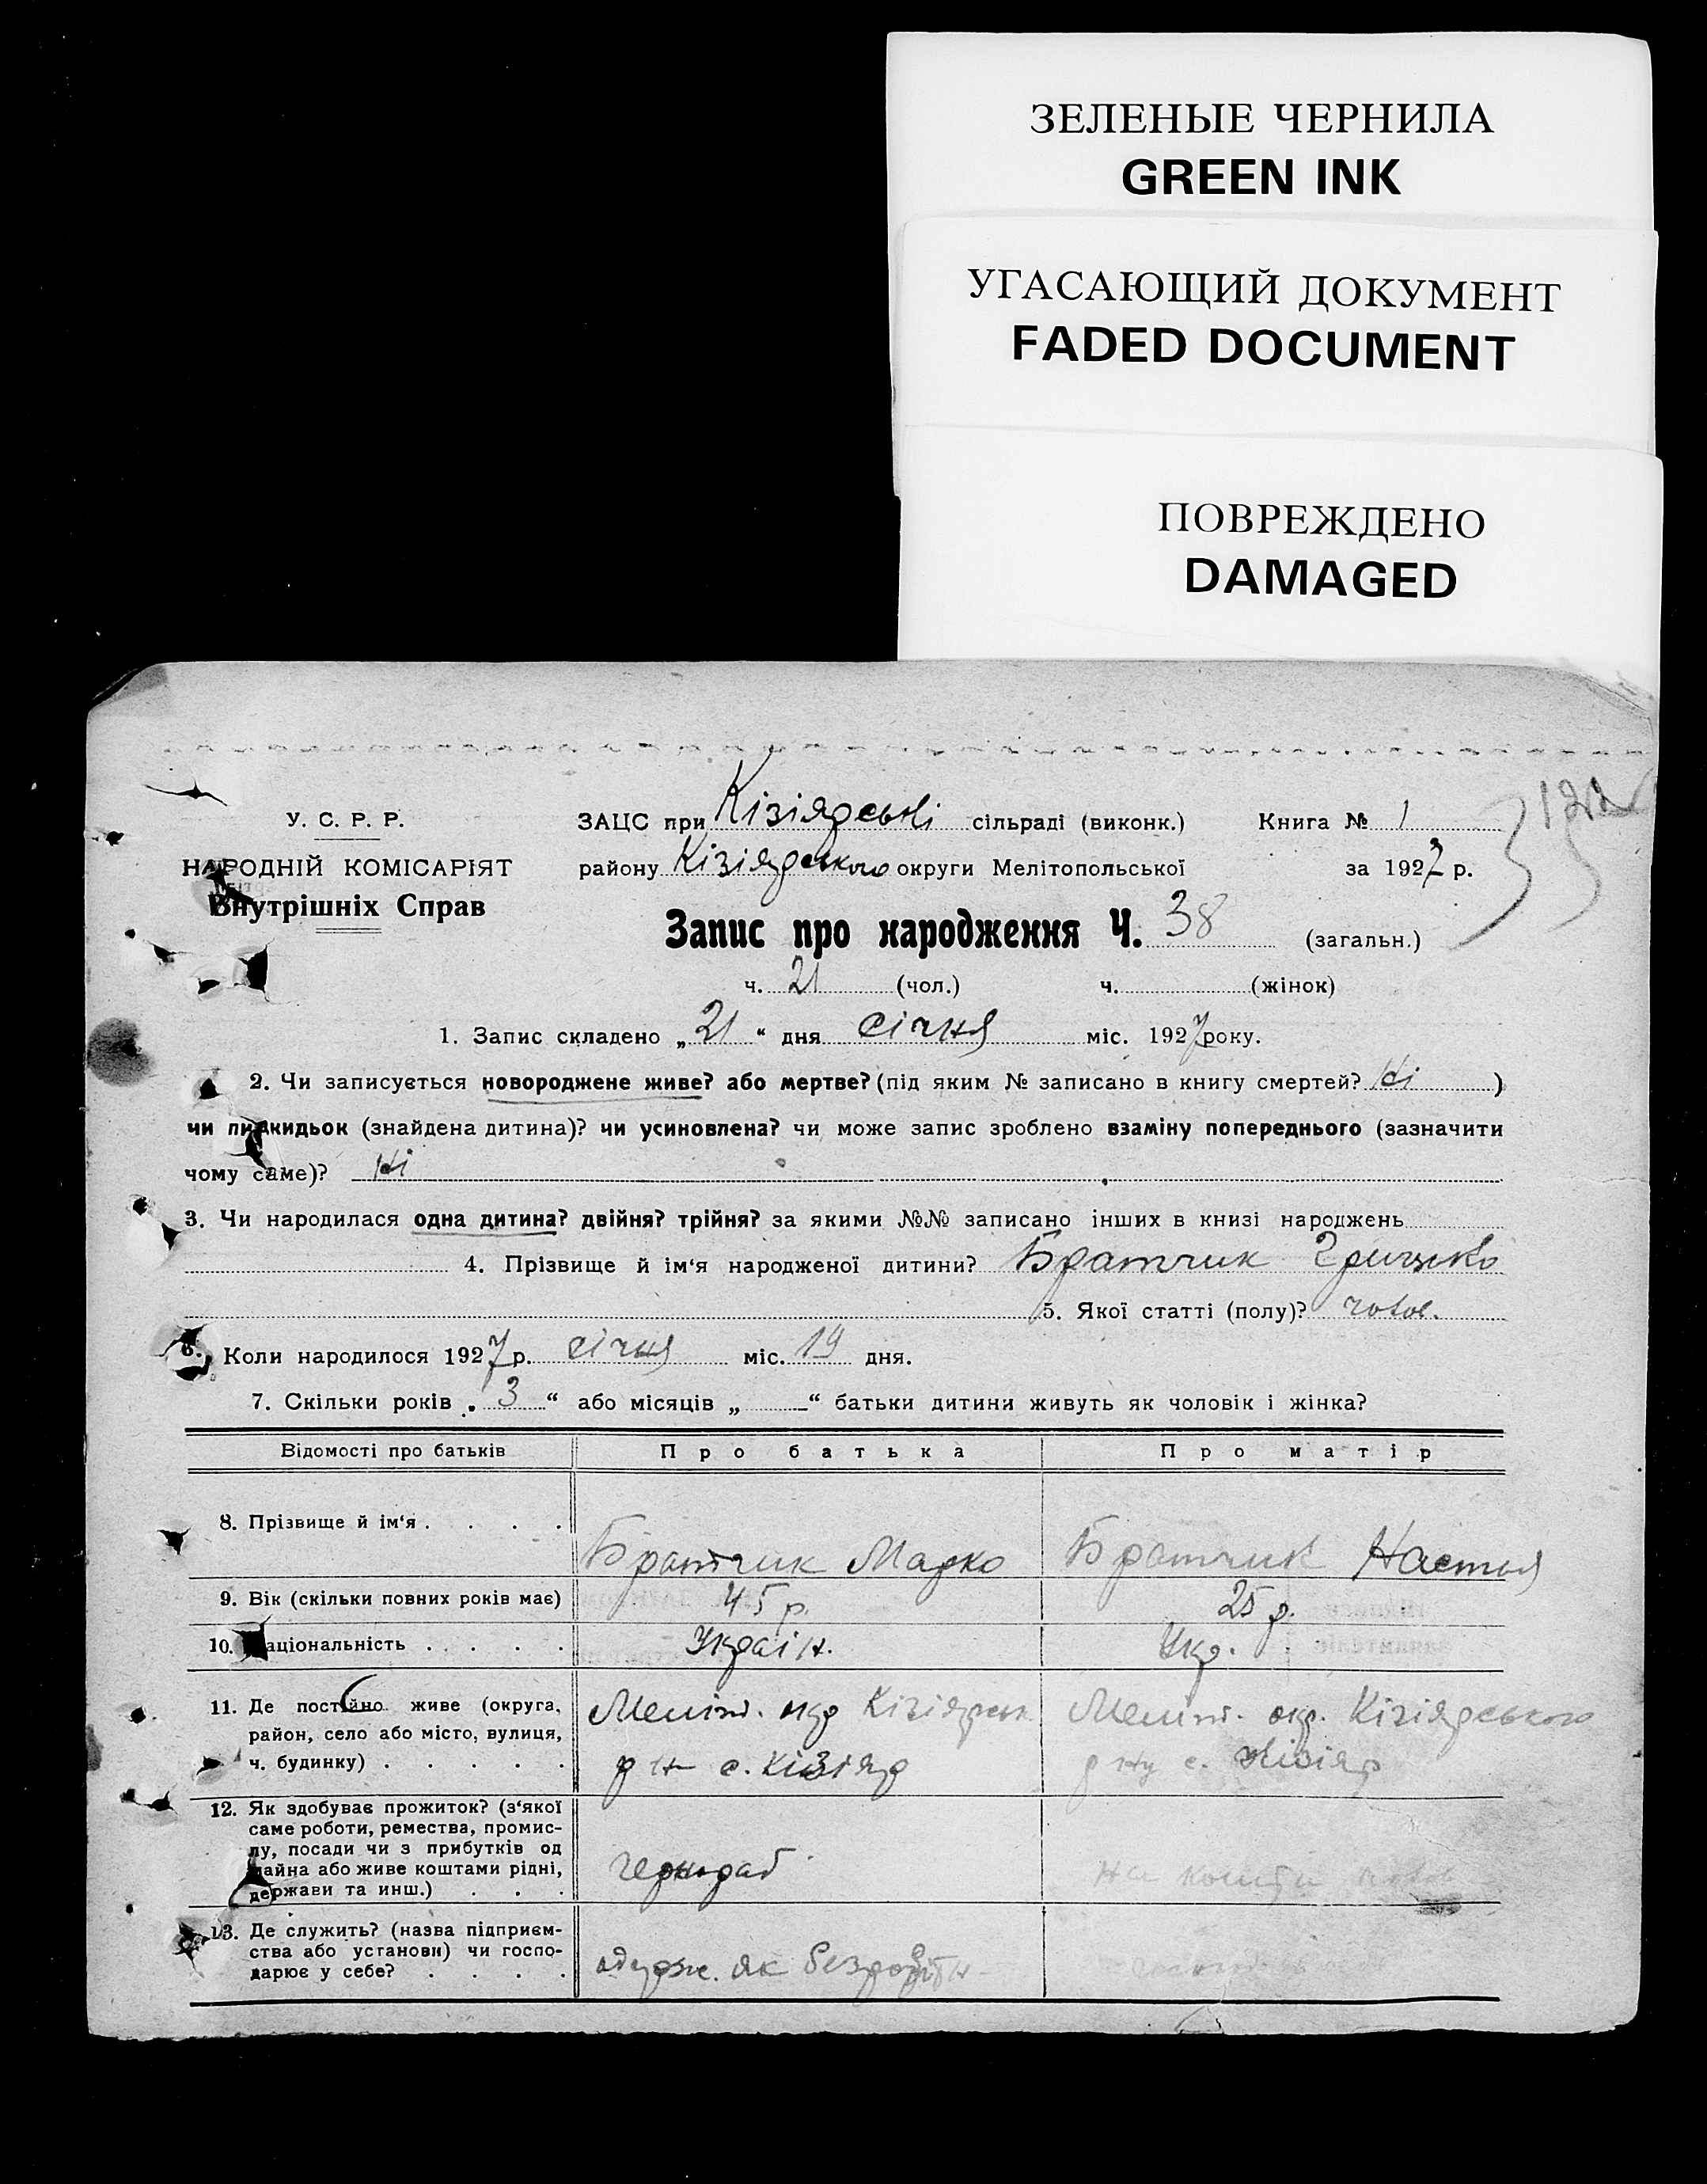 ЗЕЛЕНЫЕ ЧЕРНИЛА
GREEN INK
УГАСАЮЩИЙ ДОКУМЕНТ
FADED DOCUMENT
ПОВРЕЖДЕНО
DAMAGED
У. С. Р. Р.
НАРОДНІЙ КОМІСАРІЯТ
Внутрішніх Справ
ЗАЦС при Кізіярській сільраді (виконк.) Книга № 1
району Кізіярського округи Мелітопольської за 1927 р.
Запис про народження Ч. 38 (загальн.)
ч. 21 (чол.) ч. (жінок)
1. Запис складено „21“ дня січня міс. 1927 року.
2. Чи записується новороджене живе? або мертве? (під яким № записано в книгу смертей? Ні )
чи підкидьок (знайдена дитина)? чи усиновлена? чи може запис зроблено взаміну попереднього (зазначити
чому саме)? Ні
3. Чи народилася одна дитина? двійня? трійня? за якими №№ записано інших в книзі народжень
4. Прізвище й ім'я народженої дитини? Братчик Грицько
5. Якої статті (полу)? чолов.
6. Коли народилося 1927 р. січня міс. 19 дня.
7. Скільки років „3“ або місяців „ “ батьки дитини живуть як чоловік і жінка?
Відомості про батьків Про батька Про матір
8. Прізвище й ім'я . . . . Братчик Марко Братчик Настя
9. Вік (скільки повних років має) 45 р. 25 р.
10. Національність . . . . Україн. Укр.
11. Де постійно живе (округа, район, село або місто, вулиця, ч. будинку) . . . . .
Меліт. окр Кізіярськ. р-н с. Кізіяр
Меліт. окр. Кізіярського р-ну с. Кізіяр
12. Як здобуває прожиток? (з'якої
саме роботи, ремества, промис-
лу, посади чи з прибутків од
майна або живе коштами рідні,
держави та инш.) . . .
чернораб
на кошти
13. Де служить? (назва підприєм-
ства або установи) чи госпо-
дарює у себе? . . . .
одерж. як безробітн